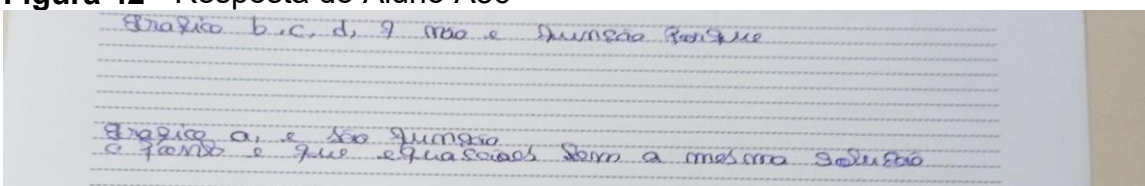 Figura 42 - Resposta do Aluno A30
Grafico b, c, d, f não e função porque
Grafico a, e são função
e que equacoes a mesma solusão